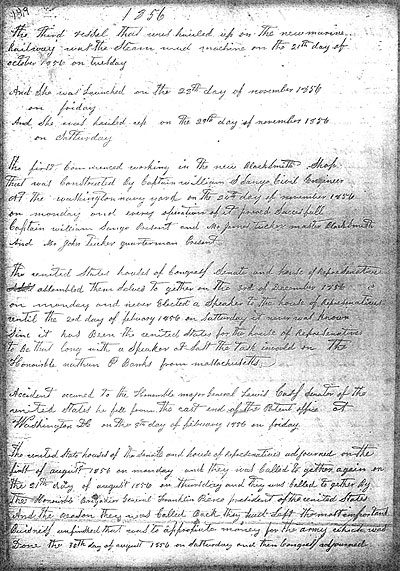 139
1856
The third vessel that was hauled up on the new marine
railway was the Steam mud machine on the 21th day of
october 1856 on tuesday
And She was Launched on the 28th day of november 1856
on friday
And She was hauled up on the 29th day of november 1856
on Satturday
the first Commenced working in the new Blacksmith Shop
that was Constructed by Captain william S Sanyo Civil Engineer
at the washington navy yard on the 24th day of november 1856
on monday and every opperation of it proved Successfull
Captain william Sanyo Present and Mr James Tucker master Blacksmith
And Mr John Tucker quarterman Present
the united States houses of Congress Senate and house of Representatives
assembled them Selves to gether on the 3rd of December 1855
on monday and never Elected a Speaker to the house of representatives
until the 2rd day of febuary 1856 on Satturday it never was known
Sinc it has Been the united States for the house of Representatives
to be that long with a Speaker at Last the Task on the
Honourable P Banks from massachusetts
Accident occured to the Honorable major General Lewis Cass Senator of the
united States he fell from the east end of the Patent office at
Washington DC on the 8th day of febuary 1856 on friday
the united States houses of the Senate and house of representatives adjourned on the
of august 1856 on monday and they was Called to gether again on
the 21th day of august 1856 on thursday and they was Called to gether by
the Honourable General Franklin Pierce president of the united States
And the reason they was Called Back they had Left the most important
Buisness unfinished that was to appropriate money for the army which was
Done the 30th day of august 1856 on Satturday and then Congress adjourned